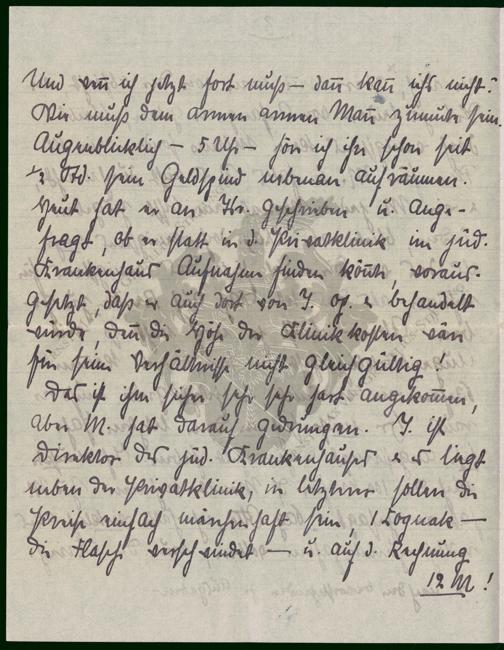 Und wen̄ ich jetzt fort muß — dan̄ kan̄ ichs nicht!
Wie muß dem armen armen Man̄ zumute sein.
Augenblicklich — 5 Uhr — hör ich ihn schon seit
½ Std. sein Geldspind nebenan aufräumen.
Heut hat er an geschrieben u. ange-
fragt, ob er statt in d. Privatklinik im jüd.
Krankenhaus Aufnahme finden kön̄te, voraus-
gesetzt, daß er auch dort von J. op. u. behandelt
würde, den̄ die Höhe der Klinikkosten wär
für seine Verhältnisse nicht gleichgültig!
Das ist ihm sicher sehr sehr hart angekom̄en,
aber M. hat darauf gedrungen. J. ist
Direktor des jüd. Krankenhauses u. es liegt
neben der Privatklinik, in letzterer sollen die
Preise einfach märchenhaft sein, 1 Cognak —
die Flasche verschwindet — u. auf d. Rechnung
12 M!